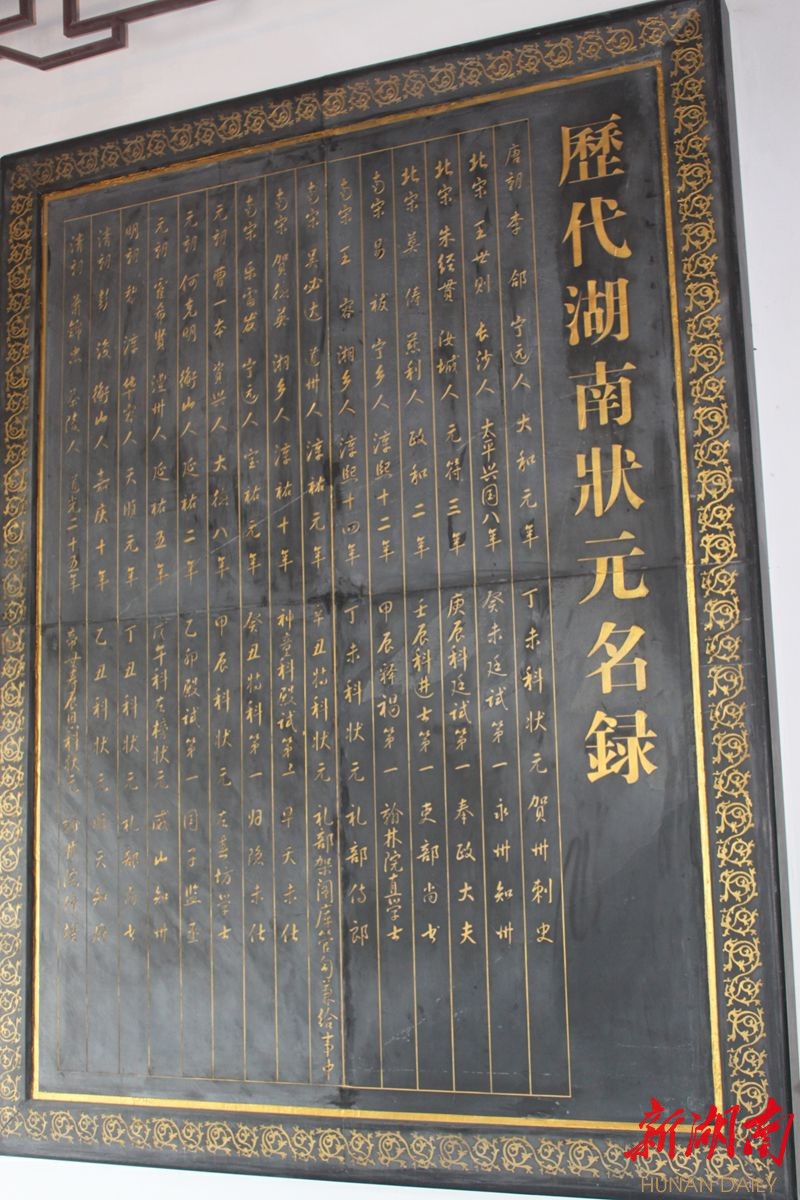 歷代湖南狀元名録
唐朝 李郃 宁远人 大和元年 丁未科状元 贺州刺史
北宋 王世则 长沙人 太平兴国八年 癸未廷试第一 永州知州
北宋 朱经贯 汝城人 元符三年 庚辰科廷试第一 奉政大夫
北宋 莫俦 慈利人 政和二年 壬辰科进士第一 吏部尚书
南宋 易祓 宁乡人 淳熙十二年 甲辰释褐第一 翰林院直学士
南宋 王容 湘乡人 淳熙十四年 丁未科状元 礼部侍郎
南宋 吴必达 道州人 淳祐元年 辛丑特科状元 礼部架阁库管勾兼给事中
南宋 贺德英 湘乡人 淳祐十年 神童科殿试第上 早夭未仕
南宋 乐雷发 宁远人 宝祐元年 癸丑特科第一 归隐未仕
元朝 曹一本 资兴人 大德八年 甲辰科状元 左春坊学士
元朝 何克明 衡山人 延祐二年 乙卯殿试第一 国子监丞
元朝 霍希贤 澧州人 延祐五年 戊午科右榜状元 威山知州
明朝 黎淳 华容人 天顺元年 丁丑科状元 礼部尚书
清朝 彭浚 衡山人 嘉庆十年 乙丑科状元 顺天知府
清朝 萧锦忠 茶陵人 道光二十五年 科状元 翰林院修撰
新湖南
HUNAN DAILY